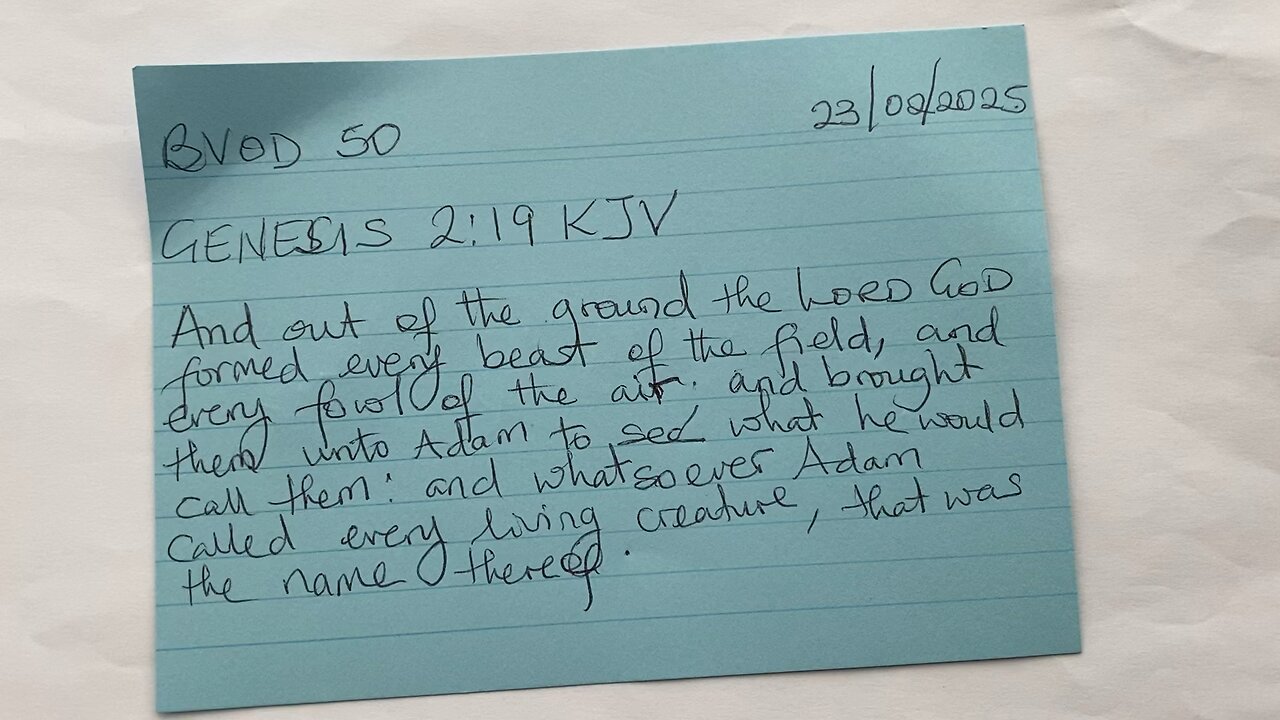 BVOD 50
23/08/2025
GENESIS 2:19 KJV
And out of the ground the LORD GOD
formed every beast of the field, and
every fowl of the air. and brought
them unto Adam to see what he would
call them: and whatsoever Adam
called every living creature, that was
the name thereof.